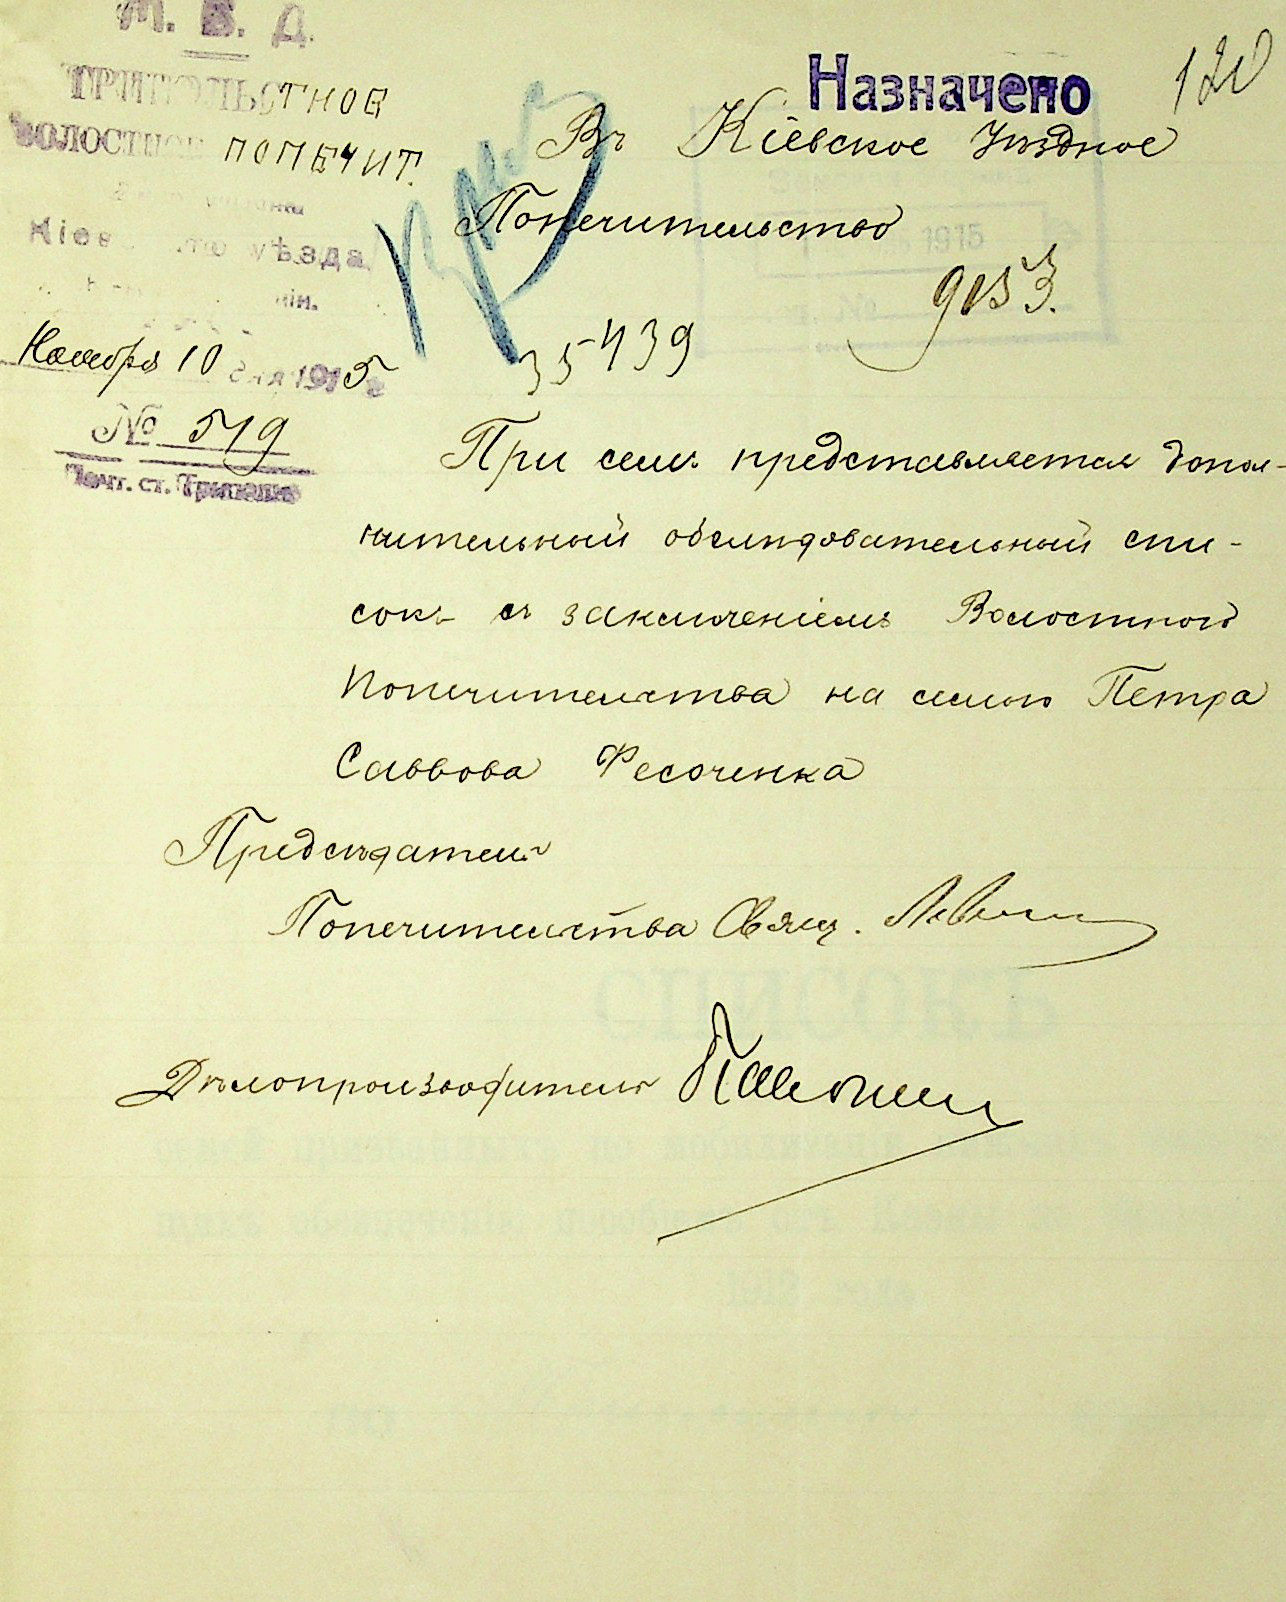 М. В. Д.
ТРИПОЛЬСТНОЕ
ВОЛОСТНОЕ ПОПЕЧИТ.
Кіев уѣзда
Ноября 10 дня 1915 г
№ 519
Почт. ст. Триполье
Назначено
120
Въ Кіевское Уѣздное
Попечительство
1915
№
9153.
35439
При семъ представляется допол-
нительный обслѣдовательный спи-
сокъ съ заключеніемъ Волостного
Попечительства на семью Петра
Саввова Фесоченка
Предсѣдатель
Попечительства Свящ.
Дѣлопроизводитель
СПИСОКЪ